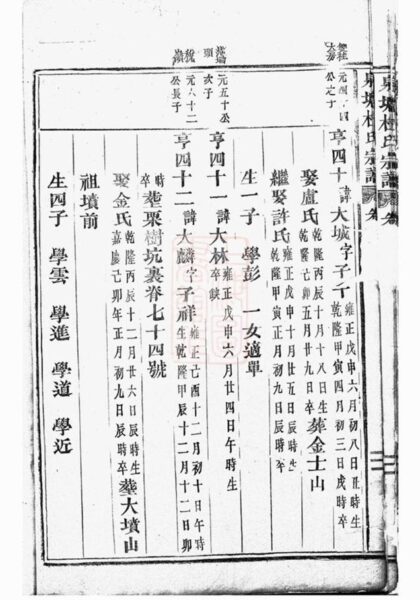 泉塘杜氏宗譜 卷
公之子
亨四十 諱大城字子千 雍正戊申六月初八日丑時生 乾隆甲寅四月初三日戌時卒
娶盧氏 乾隆丙辰十月十八日生 乾隆己卯五月廿九日卒 葬金士山
繼娶許氏 雍正戊申十月廿五日辰時生 乾隆甲寅正月初九日辰時
生一子 學彭 一女適單
元五十公 頭 次子
亨四十一 諱大林 雍正戊申六月廿四日午時生 卒缺
稅 元六十二 嶺 公長子
亨四十二 諱大麟字子祥 雍正己酉十二月初十日午時 生乾隆甲辰十二月十二日卯
時卒 葬栗樹坑裏脊七十四號
娶金氏 乾隆丙辰十二月廿六日辰時生 嘉慶己卯年正月初九日辰時卒 葬大墳山
祖墳前
生四子 學雲 學進 學道 學近